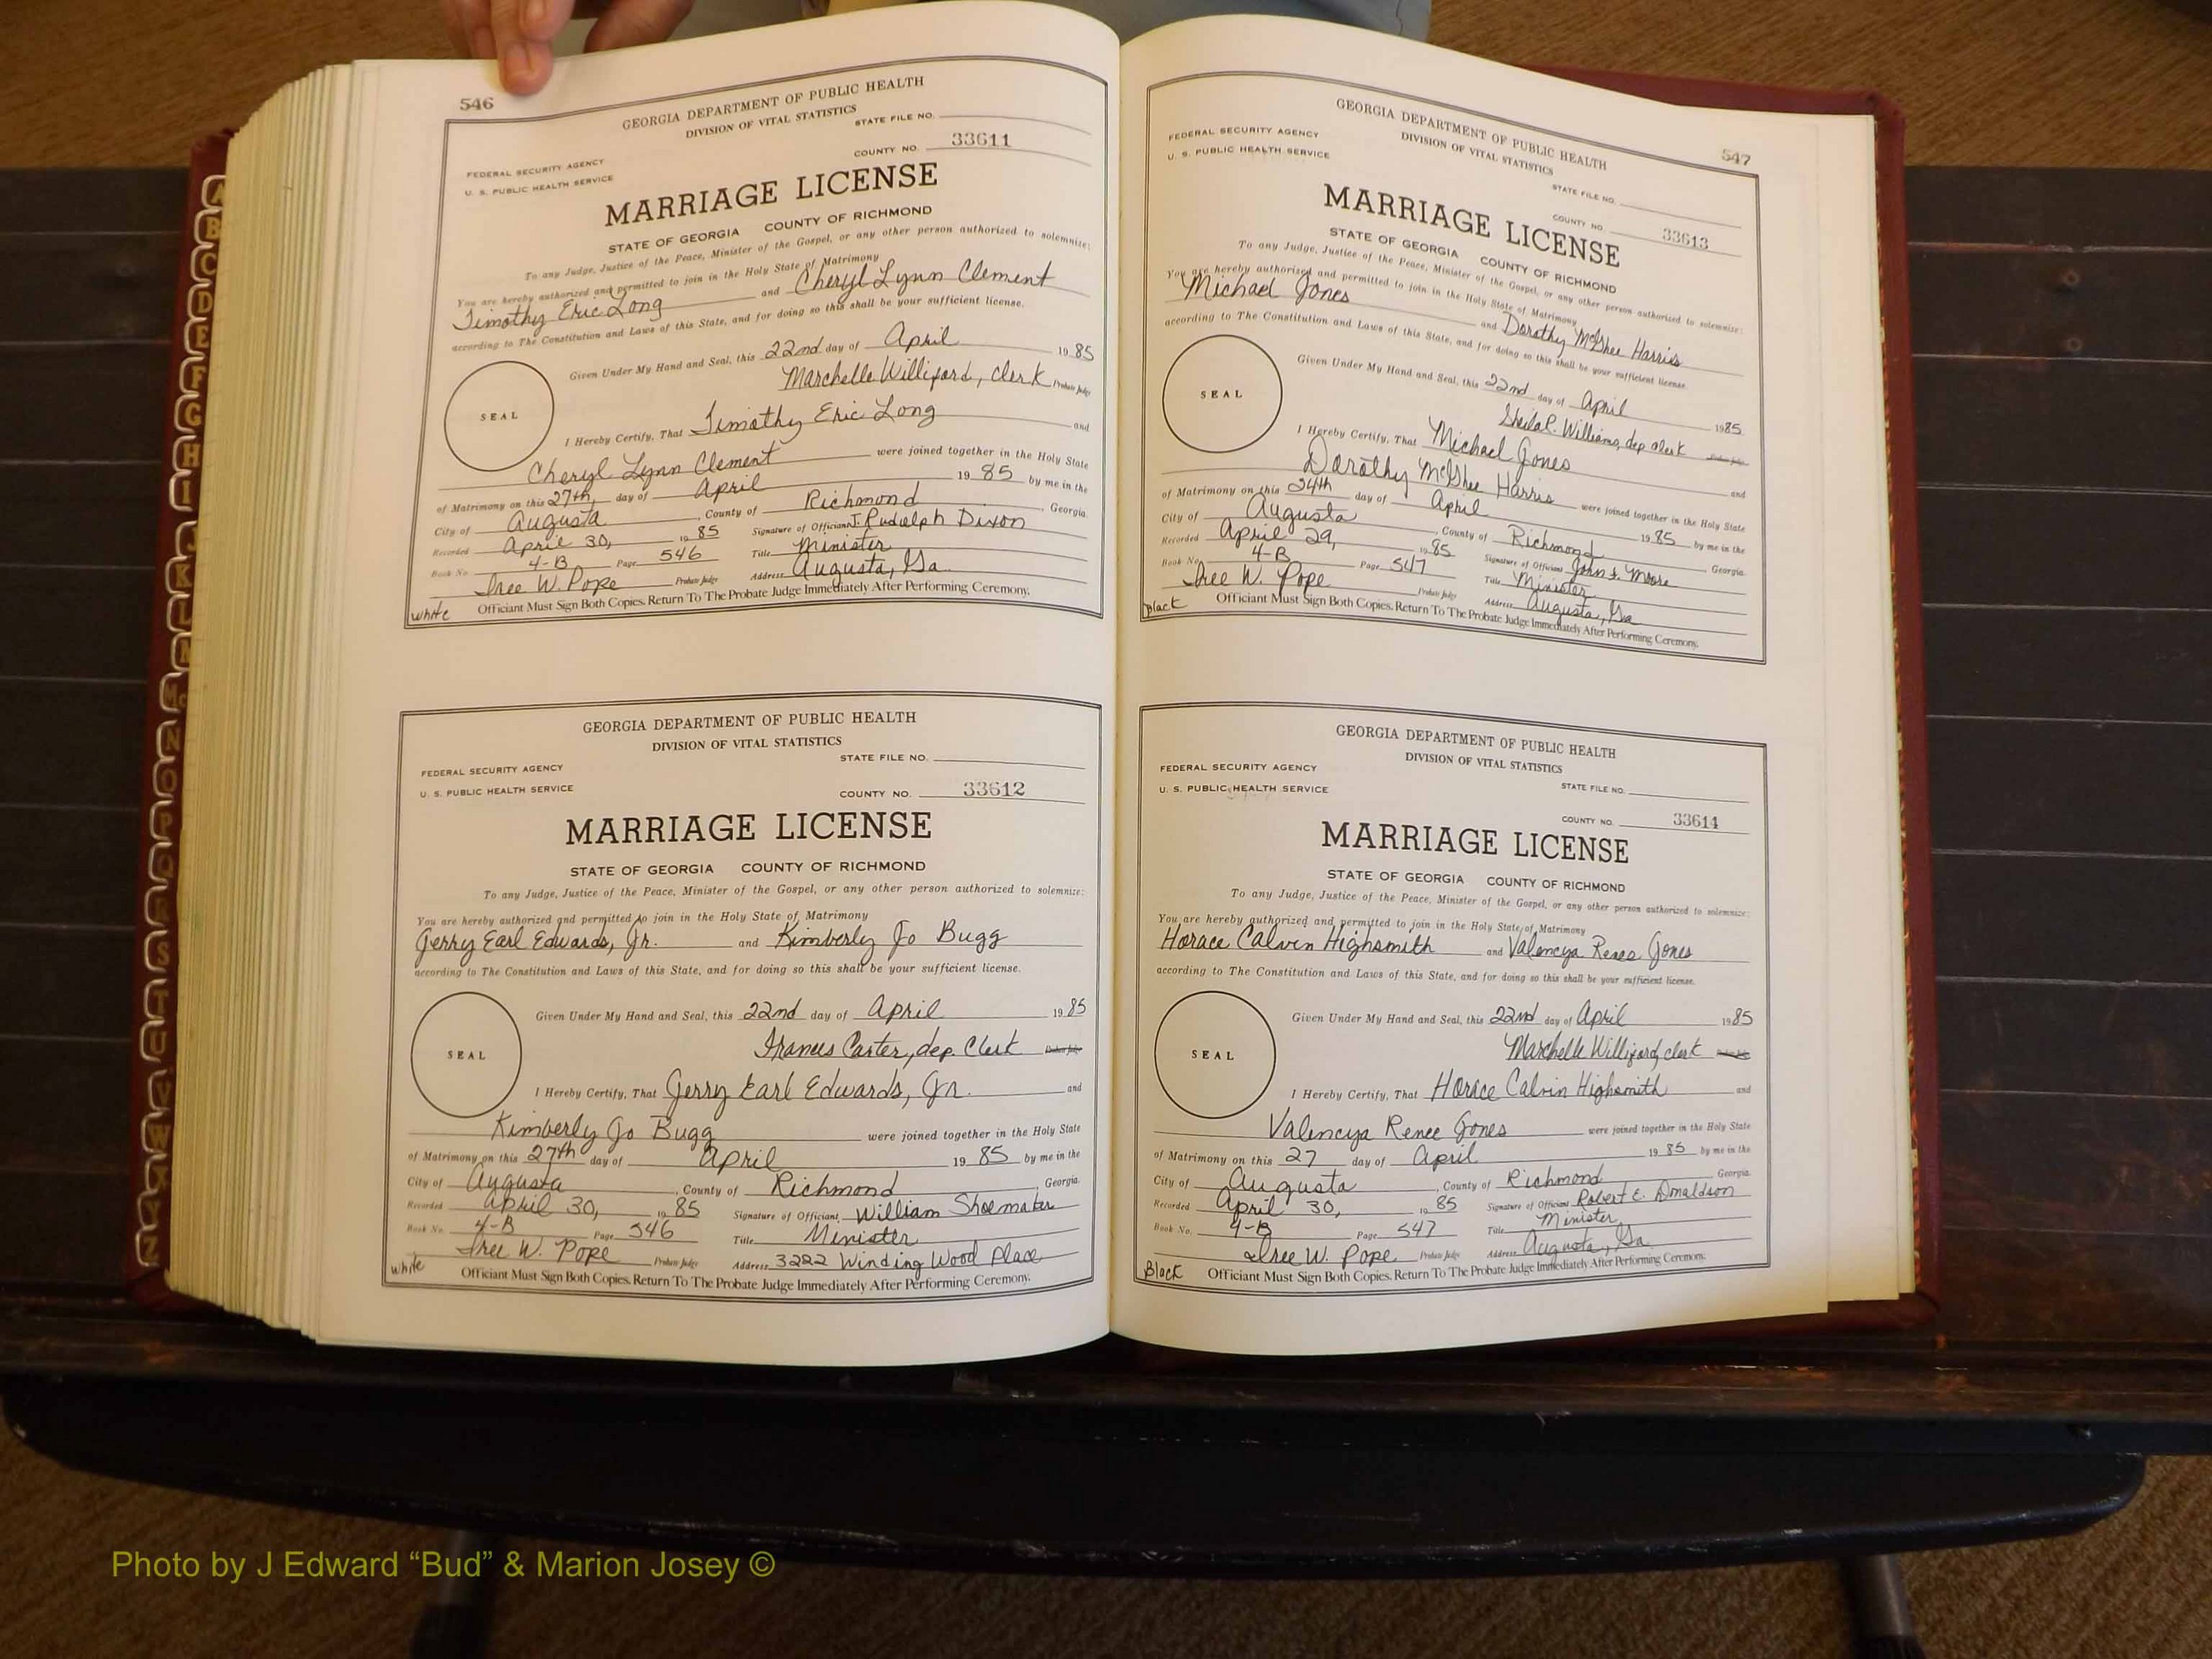 546
GEORGIA DEPARTMENT OF PUBLIC HEALTH
DIVISION OF VITAL STATISTICS
STATE FILE NO.
FEDERAL SECURITY AGENCY
U. S. PUBLIC HEALTH SERVICE
COUNTY NO. 33611
MARRIAGE LICENSE
STATE OF GEORGIA COUNTY OF RICHMOND
To any Judge, Justice of the Peace, Minister of the Gospel, or any other person authorized to solemnize:
You are hereby authorized and permitted to join in the Holy State of Matrimony
Timothy Eric Long and Cheryl Lynn Clement
according to The Constitution and Laws of this State, and for doing so this shall be your sufficient license.
Given Under My Hand and Seal, this 22nd day of April 1985
Marchelle Williford, clerk Probate Judge
SEAL
I Hereby Certify, That Timothy Eric Long and
Cheryl Lynn Clement were joined together in the Holy State
of Matrimony on this 27th, day of April 1985 by me in the
City of Augusta, County of Richmond, Georgia.
Recorded April 30, 1985 Signature of Officiant J. Rudolph Dixon
Book No. 4-B Page 546 Title Minister
Isree W. Pope Probate Judge Address Augusta, Ga.
white Officiant Must Sign Both Copies. Return To The Probate Judge Immediately After Performing Ceremony.
GEORGIA DEPARTMENT OF PUBLIC HEALTH
DIVISION OF VITAL STATISTICS
STATE FILE NO.
FEDERAL SECURITY AGENCY
U. S. PUBLIC HEALTH SERVICE
COUNTY NO. 33612
MARRIAGE LICENSE
STATE OF GEORGIA COUNTY OF RICHMOND
To any Judge, Justice of the Peace, Minister of the Gospel, or any other person authorized to solemnize:
You are hereby authorized and permitted to join in the Holy State of Matrimony
Gerry Earl Edwards, Jr. and Kimberly Jo Bugg
according to The Constitution and Laws of this State, and for doing so this shall be your sufficient license.
Given Under My Hand and Seal, this 22nd day of April 1985
Frances Carter, dep. Clerk Probate Judge
SEAL
I Hereby Certify, That Gerry Earl Edwards, Jr. and
Kimberly Jo Bugg were joined together in the Holy State
of Matrimony on this 27th day of April 1985 by me in the
City of Augusta, County of Richmond, Georgia.
Recorded April 30, 1985 Signature of Officiant William Shoemaker
Book No. 4-B Page 546 Title Minister
Isree W. Pope Probate Judge Address 3222 Winding Wood Place
white Officiant Must Sign Both Copies. Return To The Probate Judge Immediately After Performing Ceremony.
547
GEORGIA DEPARTMENT OF PUBLIC HEALTH
DIVISION OF VITAL STATISTICS
FEDERAL SECURITY AGENCY
U. S. PUBLIC HEALTH SERVICE
STATE FILE NO.
COUNTY NO. 33613
MARRIAGE LICENSE
STATE OF GEORGIA COUNTY OF RICHMOND
To any Judge, Justice of the Peace, Minister of the Gospel, or any other person authorized to solemnize:
You are hereby authorized and permitted to join in the Holy State of Matrimony
Michael Jones and Dorothy McGhee Harris
according to The Constitution and Laws of this State, and for doing so this shall be your sufficient license.
Given Under My Hand and Seal, this 22nd day of April 1985
Sheila P. Williams, dep clerk Probate Judge
SEAL
I Hereby Certify, That Michael Jones and
Dorothy McGhee Harris were joined together in the Holy State
of Matrimony on this 24th day of April 1985 by me in the
City of Augusta, County of Richmond, Georgia.
Recorded April 29, 1985 Signature of Officiant John S. Moore
Book No. 4-B Page 547 Title Minister
Isree W. Pope Probate Judge Address Augusta, Ga
black Officiant Must Sign Both Copies. Return To The Probate Judge Immediately After Performing Ceremony.
GEORGIA DEPARTMENT OF PUBLIC HEALTH
DIVISION OF VITAL STATISTICS
FEDERAL SECURITY AGENCY
U. S. PUBLIC HEALTH SERVICE
STATE FILE NO.
COUNTY NO. 33614
MARRIAGE LICENSE
STATE OF GEORGIA COUNTY OF RICHMOND
To any Judge, Justice of the Peace, Minister of the Gospel, or any other person authorized to solemnize:
You are hereby authorized and permitted to join in the Holy State of Matrimony
Horace Calvin Highsmith and Valencya Renee Jones
according to The Constitution and Laws of this State, and for doing so this shall be your sufficient license.
Given Under My Hand and Seal, this 22nd day of April 1985
Marchelle Williford, clerk
SEAL
I Hereby Certify, That Horace Calvin Highsmith and
Valencya Renee Jones were joined together in the Holy State
of Matrimony on this 27 day of April 1985 by me in the
City of Augusta, County of Richmond, Georgia.
Recorded April 30, 1985 Signature of Officiant Robert E. Donaldson
Book No. 4-B Page 547 Title Minister
Isree W. Pope Probate Judge Address Augusta, Ga.
Black Officiant Must Sign Both Copies. Return To The Probate Judge Immediately After Performing Ceremony.
Photo by J Edward “Bud” & Marion Josey ©